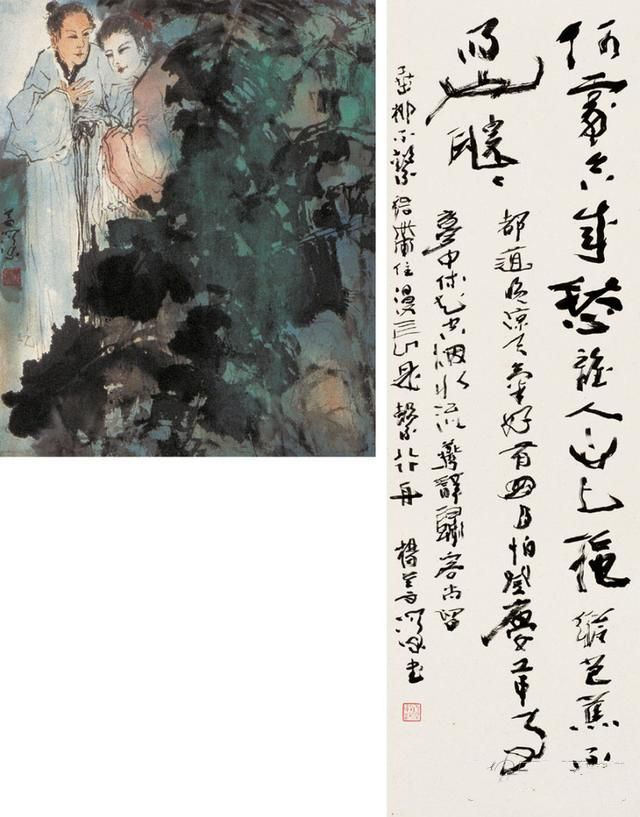 何處合成愁離人心上秋縱芭蕉不
雨也颼〻都道晚涼天氣好有明月怕登樓年事
夢中休花空煙水流燕辭歸客尚留
垂柳不縈裙帶住漫長是繫行舟 楊善深書
善深